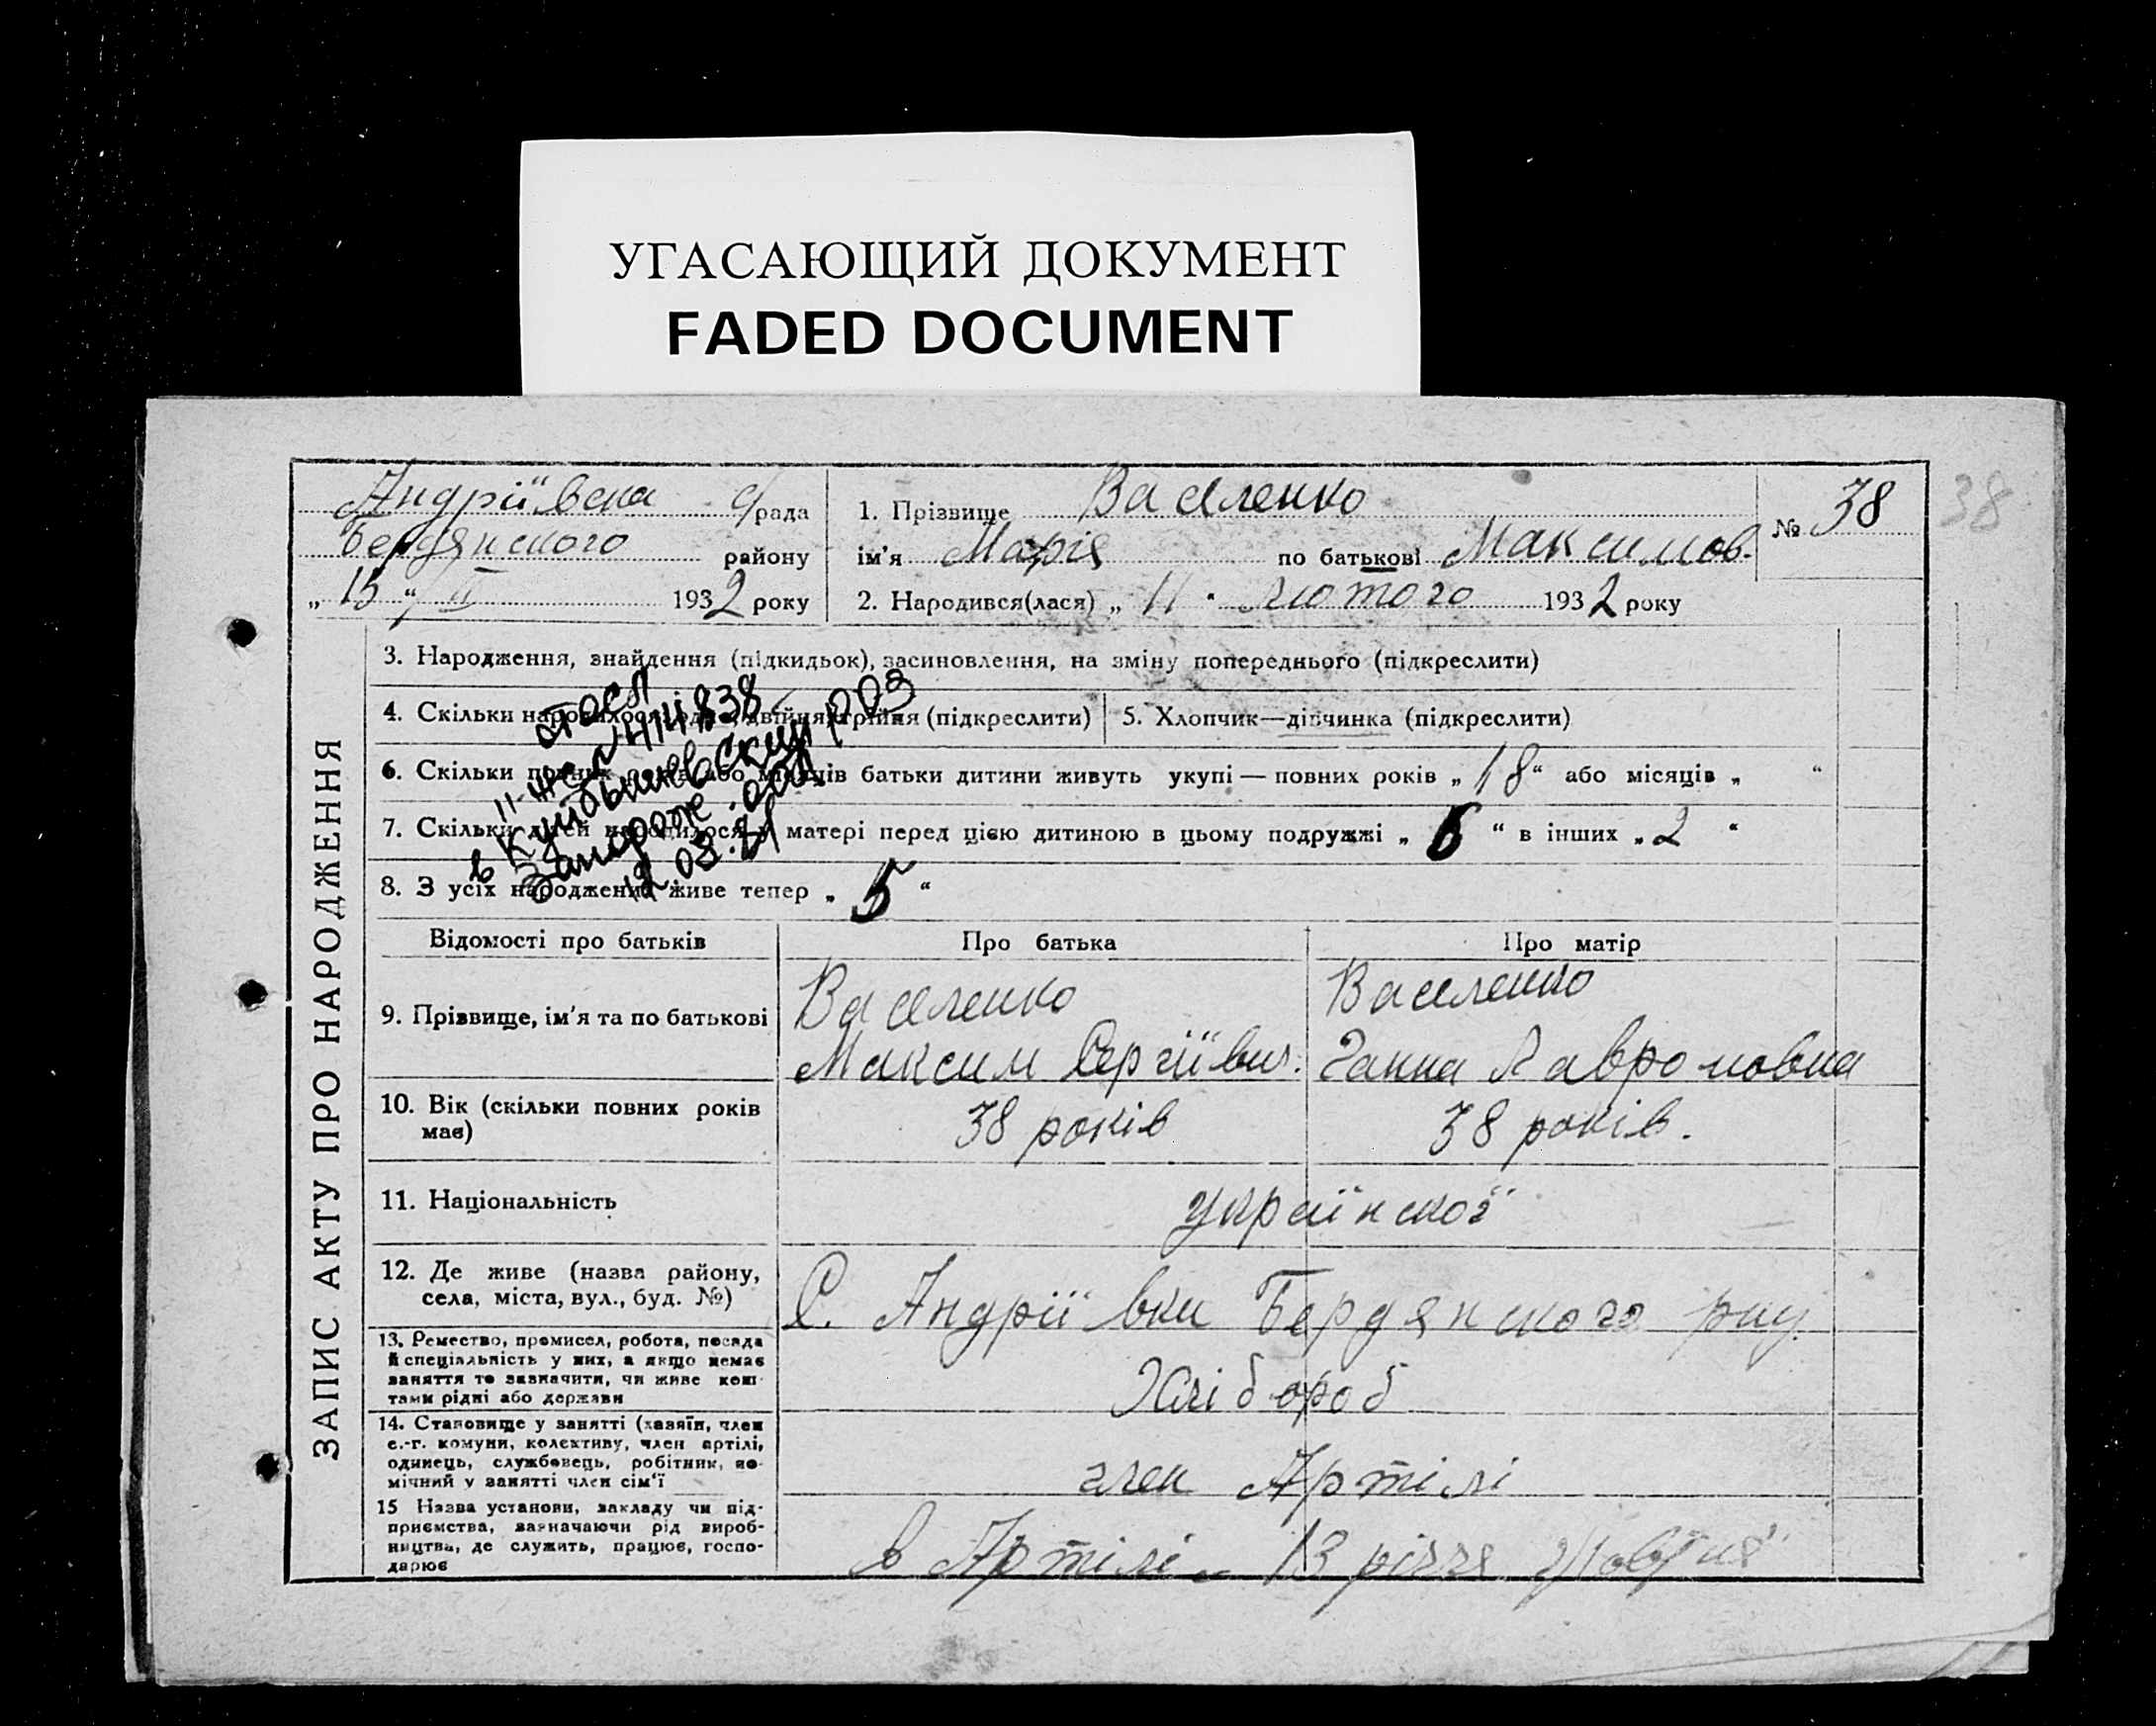 УГАСАЮЩИЙ ДОКУМЕНТ
FADED DOCUMENT
Андріївска с/рада
Бердянского району
„15“/II 1932 року
1. Прізвище Василенко
ім'я Марія по батькові Максимов.
№ 38
38
2. Народився(лася) „11“ лютого 1932 року
ЗАПИС АКТУ ПРО НАРОДЖЕННЯ
3. Народження, знайдення (підкидьок), засиновлення, на зміну попереднього (підкреслити)
4. Скільки народилося: одно, двійня, трійня (підкреслити)
5. Хлопчик—дівчинка (підкреслити)
6. Скільки повних років або місяців батьки дитини живуть укупі — повних років „18“ або місяців „ “
7. Скільки дітей народилося у матері перед цією дитиною в цьому подружжі „6“ в інших „2“
8. З усіх народжених живе тепер „5“
в Куйбышевский
Запорож. обл
12.03.
Відомості про батьків
Про батька
Про матір
9. Прізвище, ім'я та по батькові
Василенко
Максим Сергіївич.
Василенко
Ганна Лавроновна
10. Вік (скільки повних років має)
38 років
38 років.
11. Національність
української
12. Де живе (назва району, села, міста, вул., буд. №)
С. Андріївки Бердянского рну.
13. Ремество, промисел, робота, посада й спеціяльність у них, а якщо немає заняття то зазначити, чи живе коштами рідні або держави
Хлібороб
14. Становище у занятті (хазяїн, член с.-г. комуни, колективу, член артілі, одинець, службовець, робітник, помічний у занятті член сім'ї
член Артілі
15 Назва установи, закладу чи підприємства, зазначаючи рід виробництва, де служить, працює, господарює
в Артілі „13 річчя Жовтня“